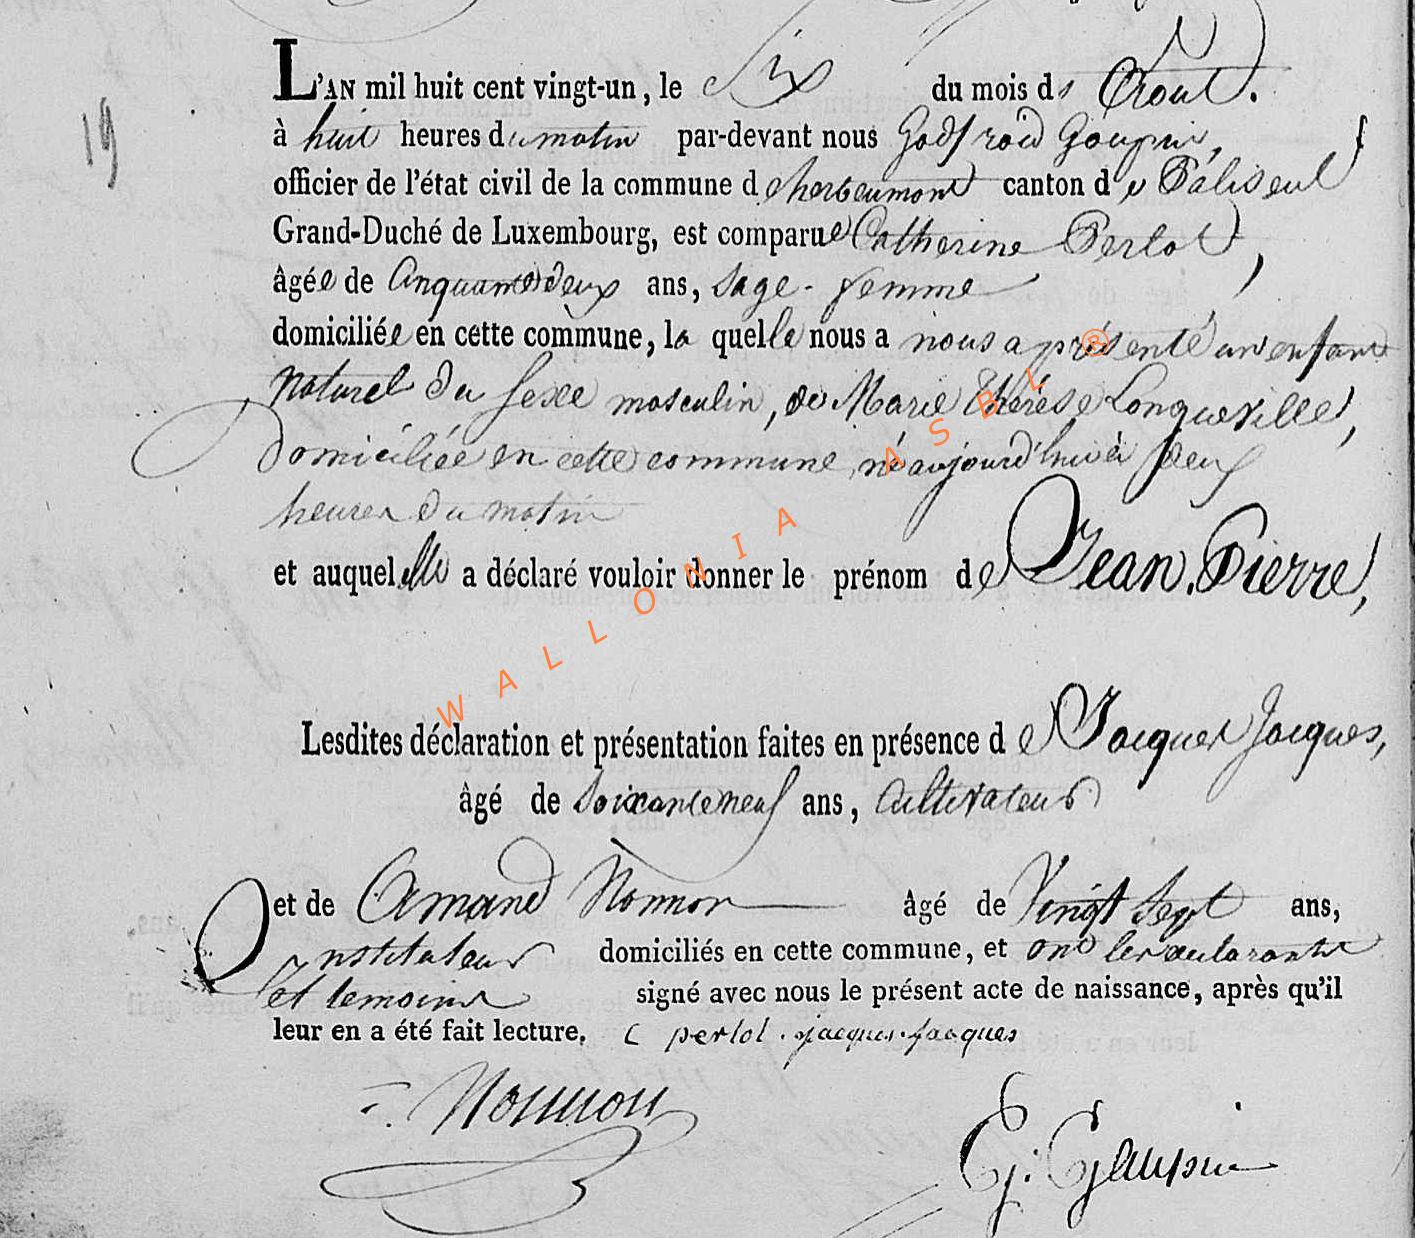 19
L'AN mil huit cent vingt-un, le Six du mois d'Aout.
à huit heures du matin par-devant nous Godfroid Goupin,
officier de l'état civil de la commune de herbeumont canton de Paliseul
Grand-Duché de Luxembourg, est comparue Catherine Perlot,
âgée de Cinquante deux ans, Sage-femme
domiciliée en cette commune, la quelle nous a nous a présenté un enfant
Naturel du Sexe masculin, de Marie Thérèse Longueville,
domiciliée en cette commune, né aujourd'hui à deux
heures du matin
et auquel elle a déclaré vouloir donner le prénom de Jean. Pierre,
Lesdites déclaration et présentation faites en présence de Jacques Jacques,
âgé de Soixante neuf ans, Cultivateur
et de Amand Nonnon âgé de Vingt Sept ans,
Instituteur domiciliés en cette commune, et ont les déclarante
et temoins signé avec nous le présent acte de naissance, après qu'il
leur en a été fait lecture. C perlot. jacques. jacques
Nonnon
G: Gaupin
WALLONIA ASBL ®